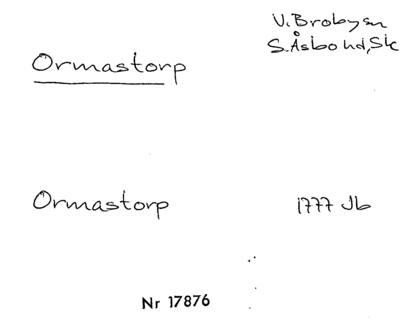 V. Broby sn
S. Åsbo hd, Sk
Ormastorp
Ormastorp 1777 Jb
Nr 17876